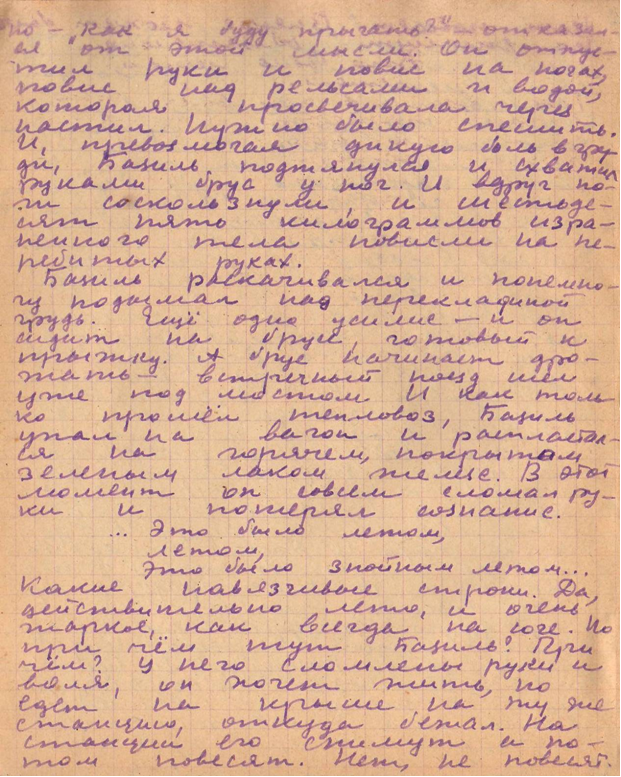 но – „как я буду прыгать?" – отказал-
ся от этой мысли. Он отпус-
тил руки и повис на ногах,
повис над рельсами и водой,
которая просвечивала через
настил. Нужно было спешить.
И, превозмогая дикую боль в гру-
ди, Базиль подтянулся и схватил
руками брус у ног. И вдруг но-
ги соскользнули, и шестьде-
сят пять килограммов изра-
ненного тела повисли на пе-
ребитых руках.
Базиль раскачивался и понемно-
гу подымал над перекладиной
грудь. Ещё одно усилие – и он
сидит на брусе, готовый к
прыжку. А брус начинает дро-
жать – встречный поезд шёл
уже под мостом. И как толь-
ко прошёл тепловоз, Базиль
упал на вагон и распластал-
ся на горячем, покрытом
зеленым лаком железе. В этот
момент он совсем сломал ру-
ки и потерял сознание.
... Это было летом,
летом,
Это было знойным летом...
Какие навязчивые строки. Да,
действительно лето, и очень
жаркое, как всегда на юге. Но
при чём тут Базиль? При
чём? У него сломлены руки и
воля, он хочет жить, но
едет на крыше на ту же
станцию, откуда бежал. На
станции его снимут и по-
том повесят. Нет, не повесят.